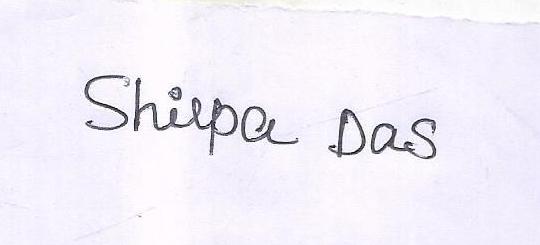 Shilpa Das